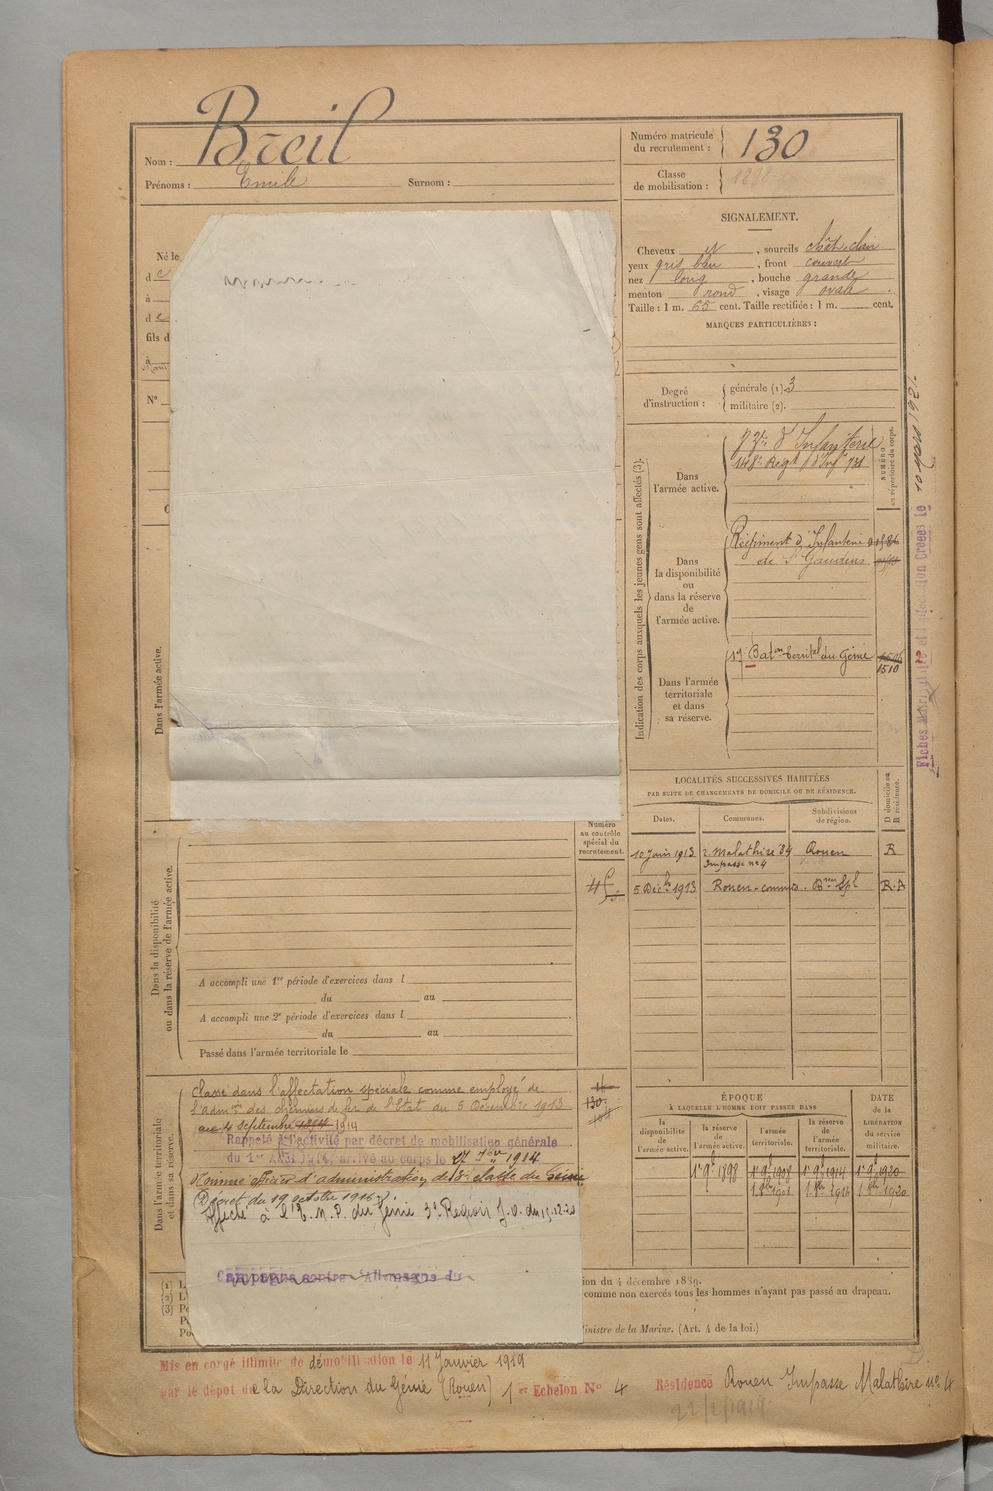 Nom : Breil
Prénoms : Emile Surnom :
Numéro matricule
du recrutement : 130
Classe
de mobilisation : 1898
Né le
d
à
d
fils d
à
N°
Dans l'armée active.
SIGNALEMENT.
Cheveux N , sourcils chât. clair
yeux gris bleu , front couvert
nez long , bouche grande
menton rond , visage ovale .
Taille : 1 m. 65 cent. Taille rectifiée : 1 m. cent.
MARQUES PARTICULIÈRES :
Degré
d'instruction :
générale (1) 3
militaire (2).
Indication des corps auxquels les jeunes gens sont affectés (3).
NUMÉRO
au répertoire du corps.
Dans
l'armée active.
d'Infanterie
148e Régt d'Infie
Dans
la disponibilité
ou
dans la réserve
de
l'armée active.
Régiment d'Infanterie
de St Gaudens
Dans l'armée
territoriale
et dans
sa réserve.
17 Baton territal du Génie
1510
LOCALITÉS SUCCESSIVES HABITÉES
PAR SUITE DE CHANGEMENTS DE DOMICILE OU DE RÉSIDENCE.
Dates. Communes. Subdivisions
de région.
D domicile ou
R résidence.
10 Juin 1913 r. Malathire 84 Rouen R
Impasse n° 4
5 Déc 1913 Rouen Spl R.D
Numéro
au contrôle
spécial du
recrutement.
Dans la disponibilité
ou dans la réserve de l'armée active.
A accompli une 1re période d'exercices dans l
du au
A accompli une 2e période d'exercices dans l
du au
Passé dans l'armée territoriale le
Dans l'armée territoriale
et dans sa réserve.
Classé dans l'affectation spéciale comme employé de
l'admon des chemins de fer de l'Etat du 5 Décembre 1913
au 4 septembre 1914
130
Rappelé à l'activité par décret de mobilisation générale
du 1er Août 1914, arrivé au corps le 1914
Nommé officier d'administration de 3e classe du Génie
Décret du 19 octobre 1916
Affecté à l'E. M. P. du Génie 3e Région J.O. du 15.12.20
Campagne contre l'Allemagne du
ÉPOQUE
À LAQUELLE L'HOMME DOIT PASSER DANS
DATE
de la
LIBÉRATION
du service
militaire.
la
disponibilité
de
l'armée active.
la
réserve de
l'armée active.
l'armée
territoriale.
la réserve
de
l'armée
territoriale.
1er 9bre 1898 1er 9bre 1908 1er 9bre 1914 1er 9bre 1920
(1) L
(2) L'
(3) Po
P
Po
tion du 4 décembre 1889.
comme non exercés tous les hommes n'ayant pas passé au drapeau.
inistre de la Marine. (Art. 4 de la loi.)
Mis en congé illimité de démobilisation le 11 Janvier 1919
par le dépôt de la Direction du Génie (Rouen) 1er Echelon N° 4
Résidence Rouen Impasse Malathire n° 4
22/2/1919